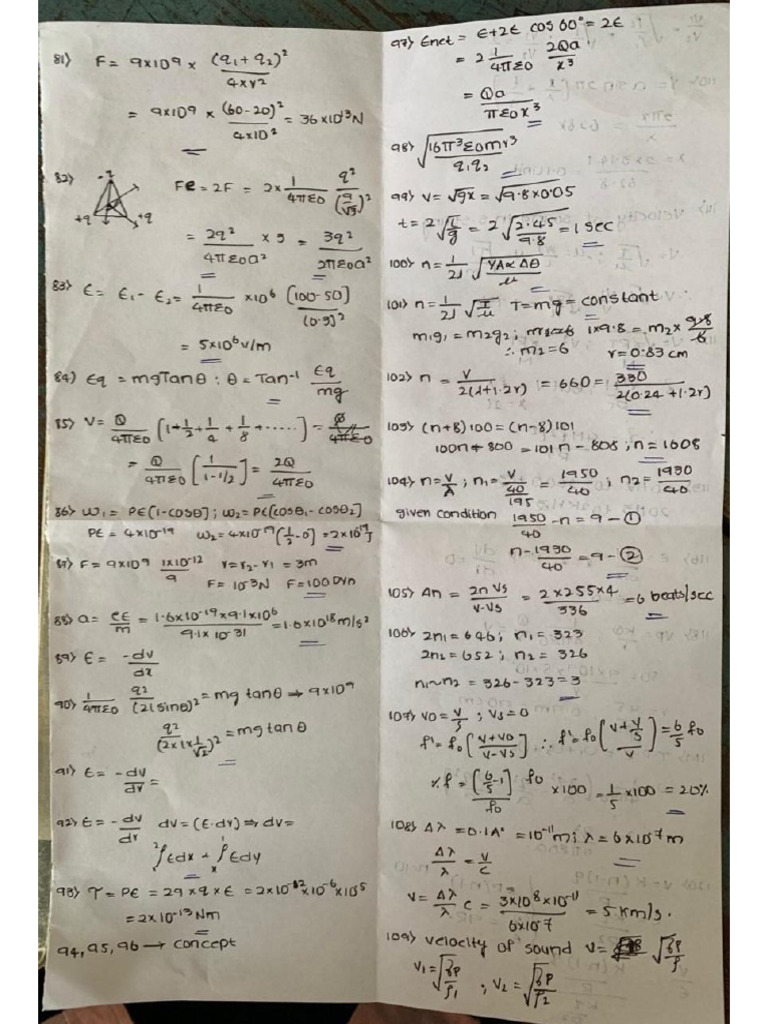 81) F = 9x10⁹ x (q₁+q₂)² / 4xr²
= 9x10⁹ x (60-20)² / 4x10² = 36x10¹³N
82) -q +q +q Fe = 2F = 2x 1/4πε0 q²/(a/√3)²
= 2q²/4πε0a² x 3 = 3q²/2πε0a²
83) E = E₁ - E₂ = 1/4πε0 x10⁶ [100-50]/(0.3)²
= 5x10⁶ v/m
84) Eq = mgTanθ ; θ = Tan⁻¹ Eq/mg
85) V = Q/4πε0 [1+1/2+1/4+1/8+.....] = Q/4πε0
= Q/4πε0 [1/1-1/2] = 2Q/4πε0
86) W₁ = PE[1-cosθ] ; W₂ = PE[cosθ₁-cosθ₂]
PE = 4x10⁻¹⁹ W₂ = 4x10⁻¹⁹[1/2-0] = 2x10⁻¹⁹J
87) F = 9x10⁹ 1x10⁻¹²/9 r=r₂-r₁ = 3m
F = 10⁻³N F = 100Dyn
88) a = eE/m = 1.6x10⁻¹⁹x9.1x10⁶/9.1x10⁻³¹ = 1.6x10¹⁸m/s²
89) E = -dv/dx
90) 1/4πε0 q²/(2lsinθ)² = mg tanθ → 9x10⁹
q²/(2x1x1/√2)² = mg tanθ
91) E = -dv/dr =
92) E = -dv/dr dv = (E.dr) ⇒ dv =
∫Edx + ∫Edy
93) τ = PE = 2a x q x E = 2x10⁻²x10⁻⁶x10⁵
= 2x10⁻¹³Nm
94,95,96 → concept
97) Enet = E+2E cos60° = 2E
= 2 1/4πε0 2Qa/x³
= Qa/πε0x³
98) √16π³ε0mr³/q₁q₂
99) v = √gx = √9.8x0.05
t = 2√l/g = 2√2.45/9.8 = 1 sec
100) n = 1/2l √YA∝Δθ/μ
101) n = 1/2l √T/μ T = mg = constant
m₁g₁ = m₂g₂ ; 1x9.8 = m₂x 9.8/6
∴ m₂=6 r = 0.83 cm
102) n = v/2(l+1.2r) = 660 = 330/2(0.24+1.2r)
103) (n+8)100 = (n-8)101
100n+800 = 101n - 808 ; n = 1608
104) n = v/λ ; n₁ = v/40/195 = 1950/40 ; n₂ = 1930/40
given condition 1950/40 - n = 9 - ①
n - 1930/40 = 9 - ②
105) Δn = 2n Vs/V-Vs = 2x255x4/336 = 6 beats/sec
106) 2n₁ = 646; n₁ = 323
2n₂ = 652 ; n₂ = 326
n₁~n₂ = 326-323 = 3
107) V0 = V/5 ; Vs = 0
f' = f0 [V+V0/V-Vs] ∴ f' = f0 [V+V/5/V] = 6/5 f0
% f = [6/5-1] f0/f0 x100 = 1/5 x100 = 20%
108) Δλ = 0.1A° = 10⁻¹¹m ; λ = 6x10⁻⁷m
Δλ/λ = v/c
V = Δλ/λ C = 3x10⁸x10⁻¹¹/6x10⁻⁷ = 5 Km/s.
109) velocity of sound V = √γP/ρ
V₁ = √γP/ρ₁ , V₂ = √γP/ρ₂